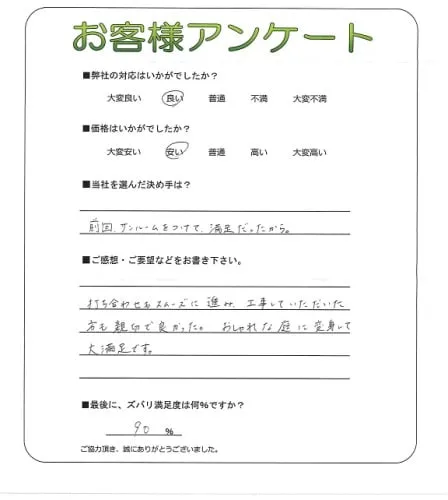 お客様アンケート
■弊社の対応はいかがでしたか？
大変良い 良い 普通 不満 大変不満
■価格はいかがでしたか？
大変安い 安い 普通 高い 大変高い
■当社を選んだ決め手は？
前回、サンルームをつけて、満足だったから。
■ご感想・ご要望などをお書き下さい。
打ち合わせもスムーズに進み、工事していただいた
方も親切で良かった。おしゃれな庭に変身して
大満足です。
■最後に、ズバリ満足度は何%ですか？
90 %
ご協力頂き、誠にありがとうございました。